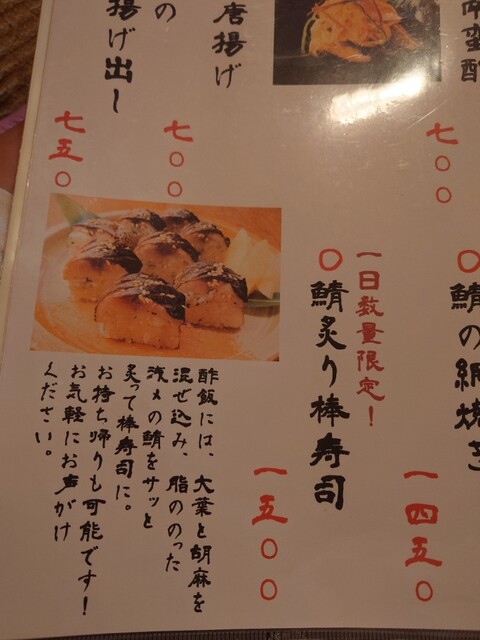 南蛮酢
七〇〇
唐揚げ
七〇〇
の
揚げ出し
七五〇
〇鯖の網焼き
一四五〇
一日数量限定！
〇鯖炙り棒寿司
一五〇〇
酢飯には、大葉と胡麻を
混ぜ込み、脂ののった
〆の鯖をサッと
炙って棒寿司に。
お持ち帰りも可能です！
お気軽にお声がけ
ください。